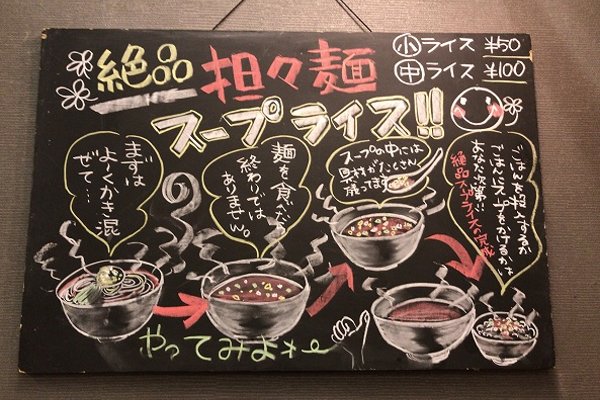 絶品 担々麺
スープライス!!
小 ライス ¥50
中 ライス ¥100
まずは
よ〜くかき混
ぜて…
麺を食べたら
終わりでは
ありません。
スープの中には
具材がたくさん
残ってます
ごはんを投入するか
ごはんにスープをかけるかは
あなた次第!!
絶品スープライスの完成
やってみよォー